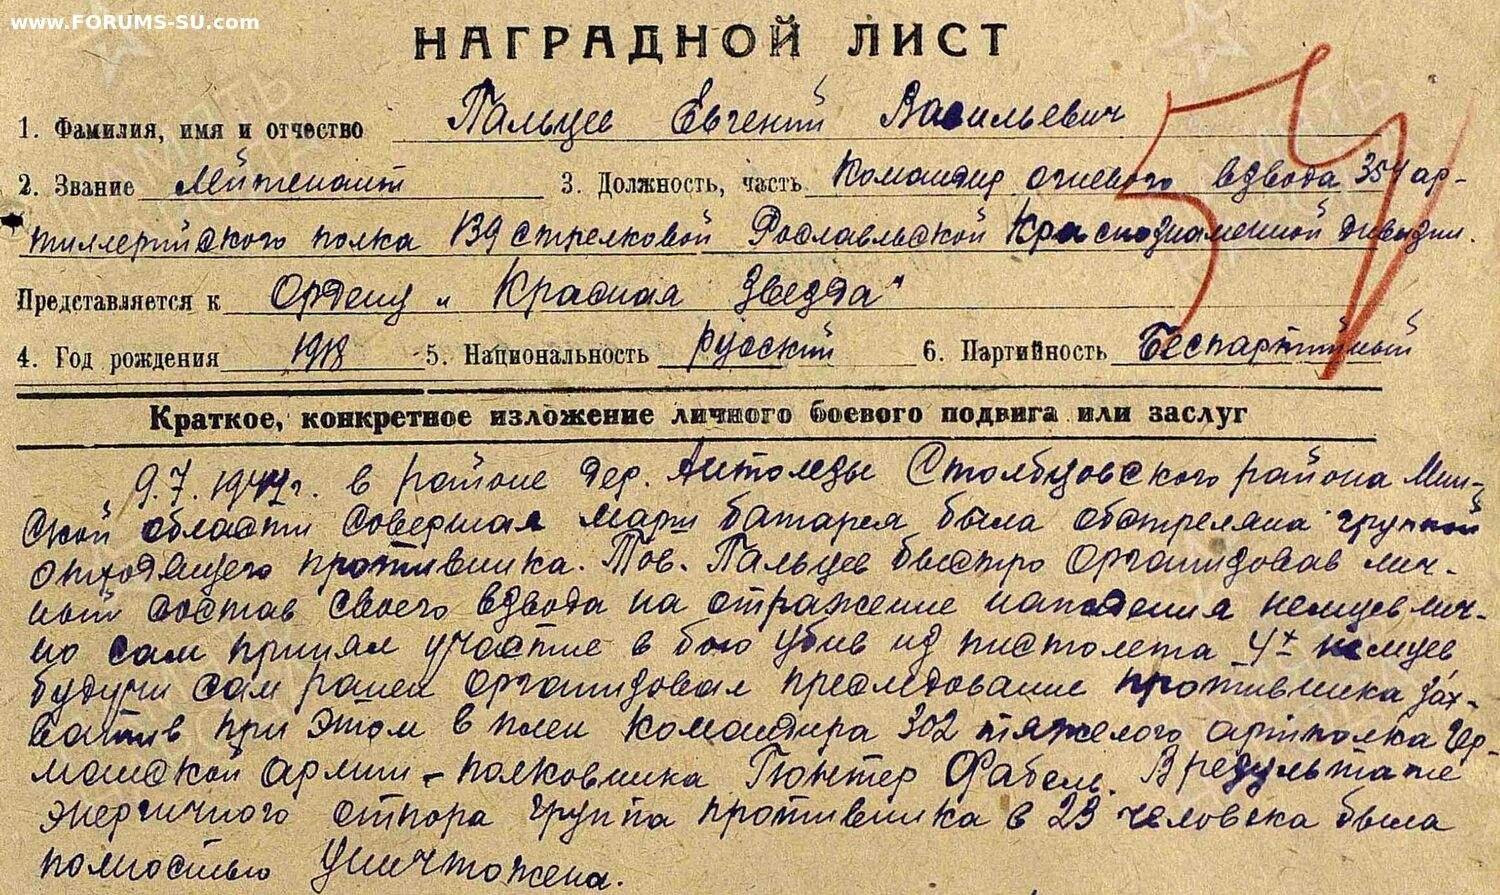 www.FORUMS-SU.com
НАГРАДНОЙ ЛИСТ
57
1. Фамилия, имя и отчество Пальцев Евгений Васильевич
2. Звание Лейтенант 3. Должность, часть Командир огневого взвода 354 ар-
тиллерийского полка 139 стрелковой Рославльской Краснознаменной дивизии.
Представляется к Ордену "Красная Звезда"
4. Год рождения 1918 5. Национальность русский 6. Партийность Беспартийный
Краткое, конкретное изложение личного боевого подвига или заслуг
9.7.1944г. в районе дер. Столбцовского района Мин-
ской области совершая марш батарея была обстреляна группой
отходящего противника. Тов. Пальцев быстро организовав лич-
ный состав своего взвода на отражение нападения немцев лич-
но сам принял участие в бою убив из пистолета 4х немцев
будучи сам ранен организовал преследование противника зах-
ватив при этом в плен командира 302 тяжелого артполка Гер-
манской армии - полковника Гюнтер Фабель. В результате
энергичного отпора группа противника в 23 человека была
полностью уничтожена.